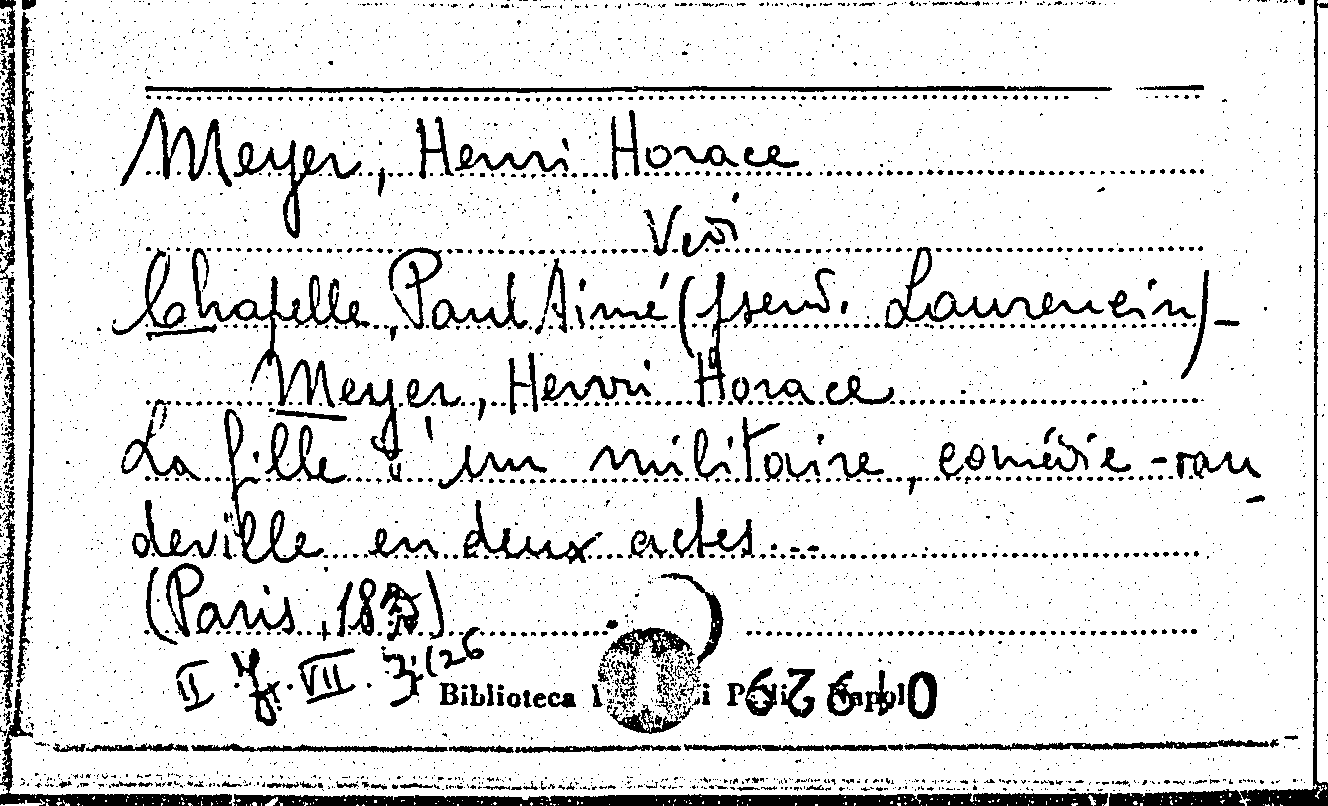 Meyer, Henri Horace
Vedi
Chapelle, Paul Aimé (pseud. Laurencin) -
Meyer, Henri Horace
La fille d'un militaire, comédie-vau
deville en deux actes...
(Paris, 18
II VII
Biblioteca